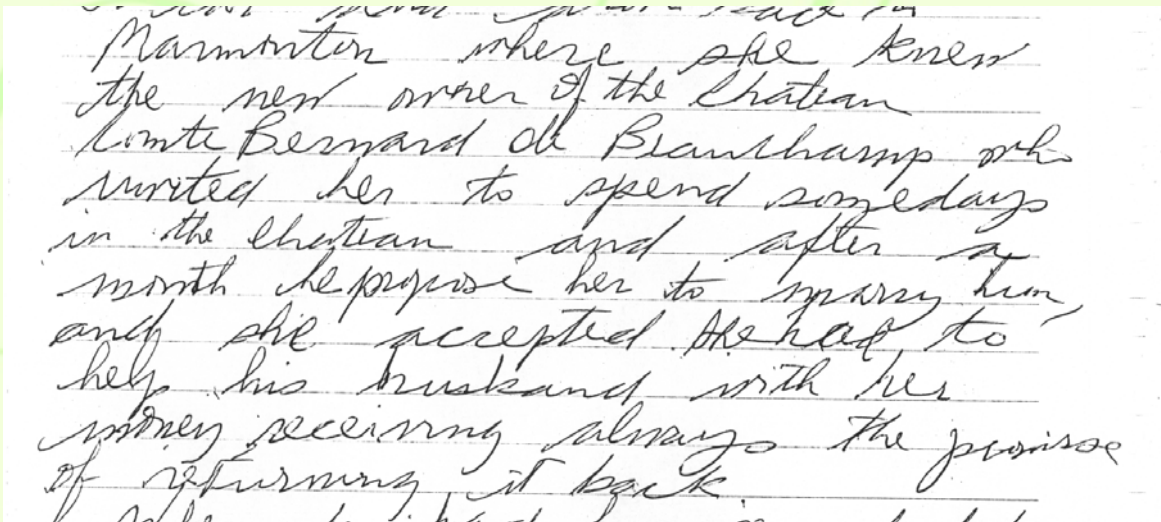 Marmonton where she knew
the new owner of the Chateau
Comte Bernard de Beauchamp who
invited her to spend somedays
in the Chateau and after a
month he propose her to marry him,
and she accepted. She had to
help his huskand with her
money receiving always the promise
of returning it back